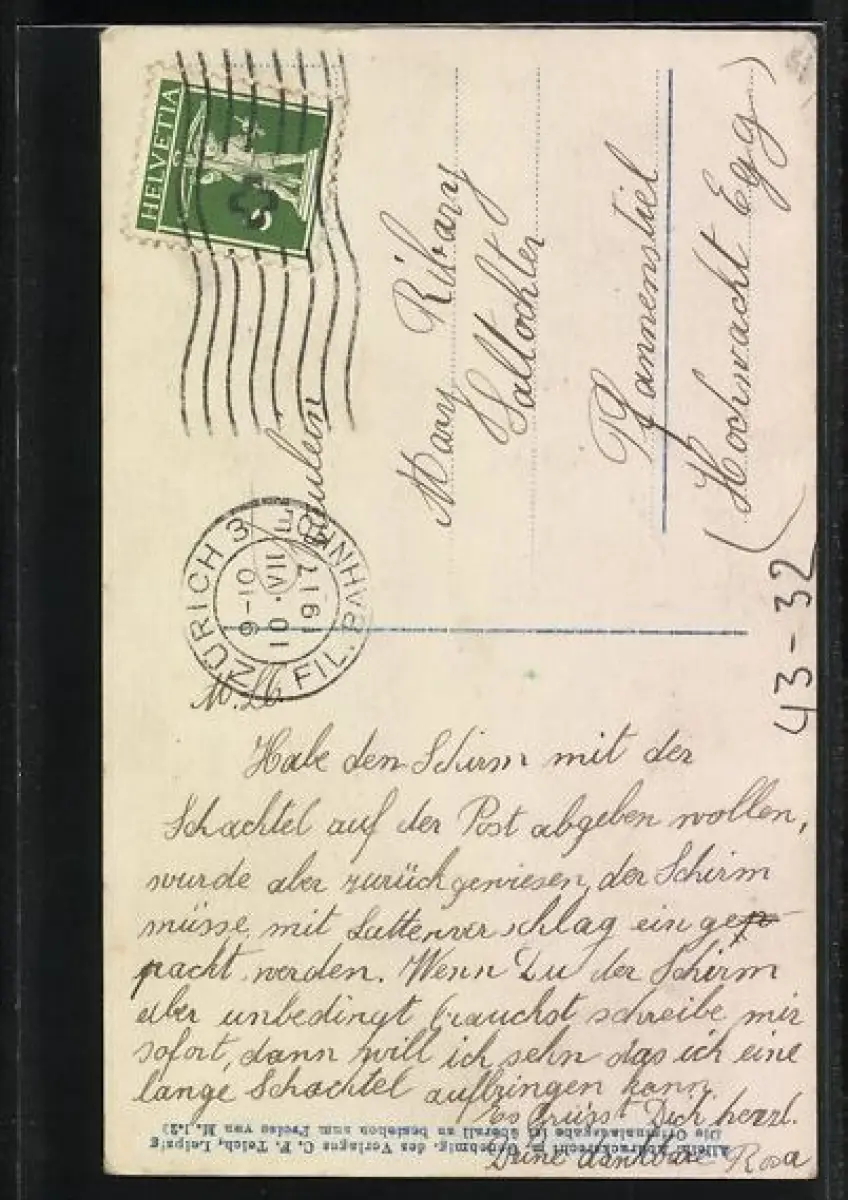 HELVETIA
ZÜRICH 3
BAHNHOF
FIL.
10. VII
1917
Fräulein
Mary Ribary
Saltochter
Pfannenstiel
(Hochwacht Egg)
43-32
M. Lb.
Habe den Schirm mit der
Schachtel auf der Post abgeben wollen,
wurde aber zurückgewiesen, der Schirm
müsse mit Lattenverschlag eingep-
packt werden. Wenn Du der Schirm
aber unbedingt brauchst schreibe mir
sofort, dann will ich sehn das ich eine
lange Schachtel aufbringen kann.
Es grüsst Dich herzl.
Deine dankbare Rosa
m. Genehmig. des Verlages C. F. Teich, Leipzig
Die Originalausgabe ist überall zu beziehen zum Preise von M 1.25